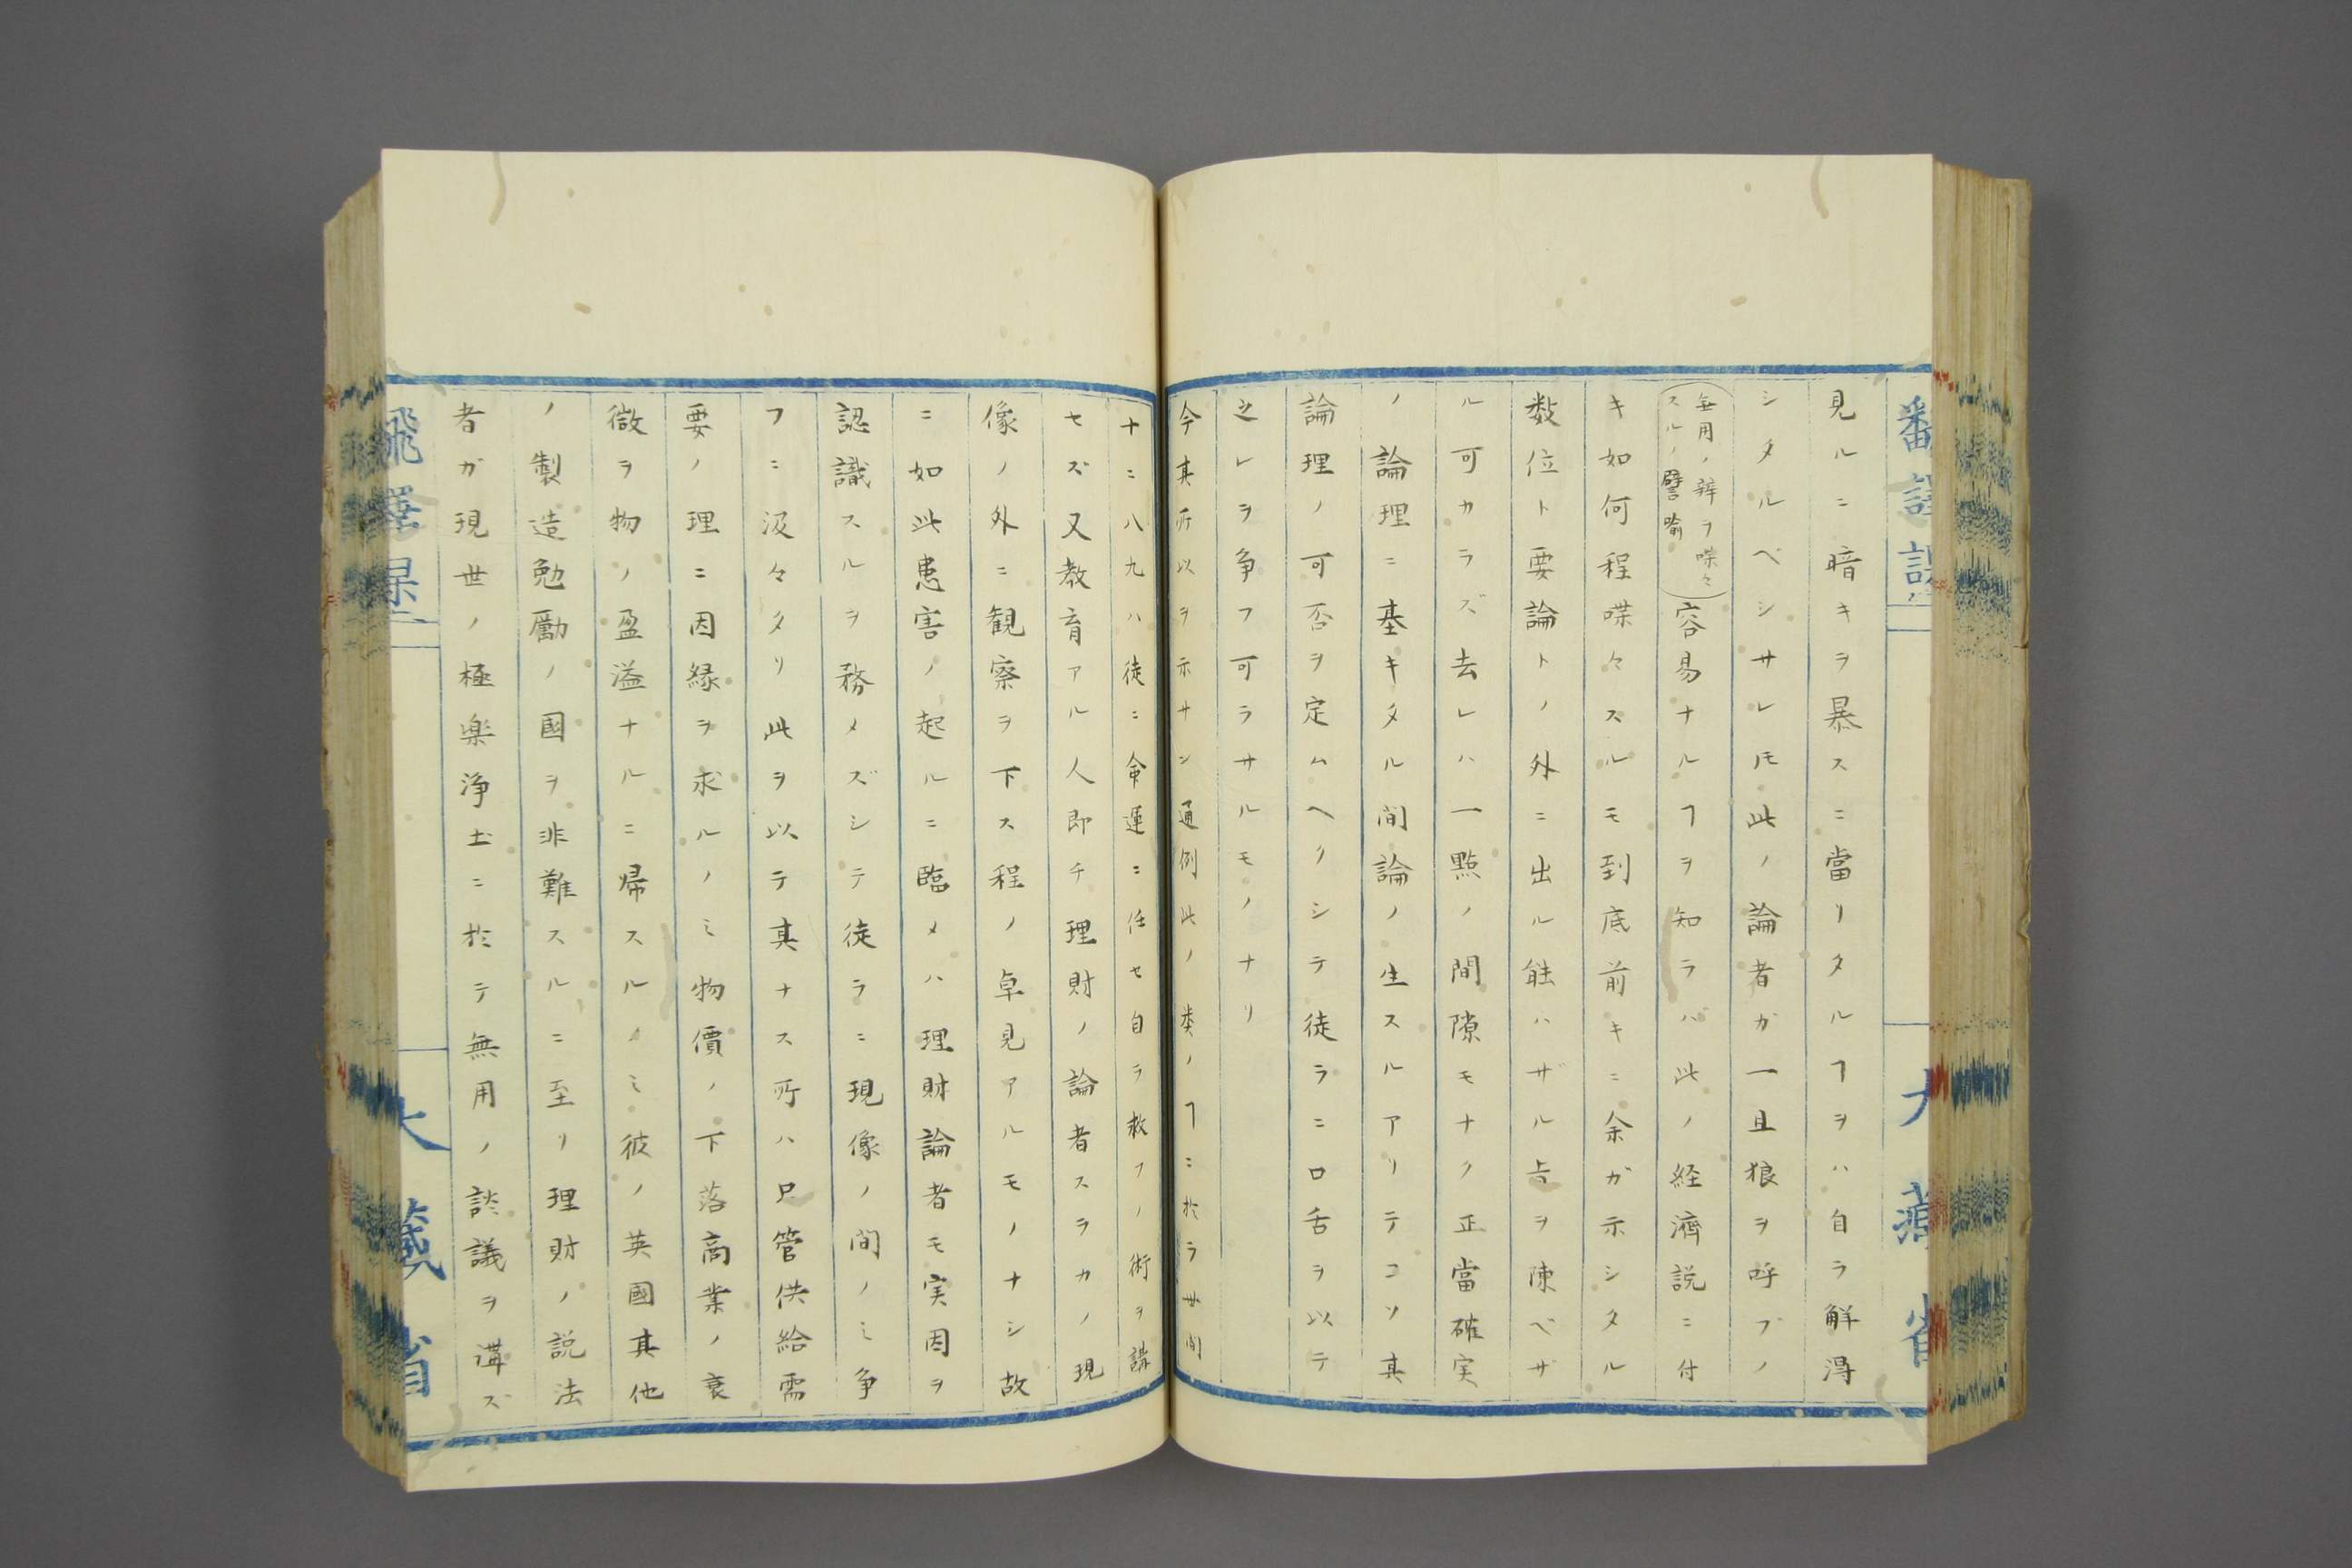 見ルニ暗キヲ暴スニ當リタルヿヲハ自ラ解得
シタルベシサレ𪜈此ノ論者カ一旦狼ヲ呼ブノ
(無用ノ辨ヲ喋々
スルノ譬喩)容易ナルヿヲ知ラバ此ノ経濟説ニ付
キ如何程喋々スルモ到底前キニ余ガ示シタル
数位ト要論トノ外ニ出ル能ハザル㫖ヲ陳ベザ
ル可カラズ去レハ一㸃ノ間隙モナク正當確実
ノ論理ニ基キタル間論ノ生スルアリテコソ其
論理ノ可否ヲ定ムヘクシテ徒ラニ口舌ヲ以テ
之レヲ争フ可ラサルモノナリ
今其所以ヲ示サン通例此ノ類ノヿニ於ラ世間
十ニ八九ハ徒ニ命運ニ任セ自ラ救フノ術ヲ講
セズ又教育アル人即チ理財ノ論者スラカノ現
像ノ外ニ観察ヲ下ス程ノ卓見アルモノナシ故
ニ如此患害ノ起ルニ臨メハ理財論者モ実因ヲ
認識スルヲ務メズシテ徒ラニ現像ノ間ノミ争
フニ汲々タリ此ヲ以テ其ナス所ハ只管供給需
要ノ理ニ因縁ヲ求ルノミ物價ノ下落商業ノ衰
微ヲ物ノ盈溢ナルニ帰スルノミ彼ノ英國其他
ノ製造勉勵ノ國ヲ非難スルニ至リ理財ノ説法
者ガ現世ノ極楽浄土ニ於テ無用ノ談議ヲ講ズ